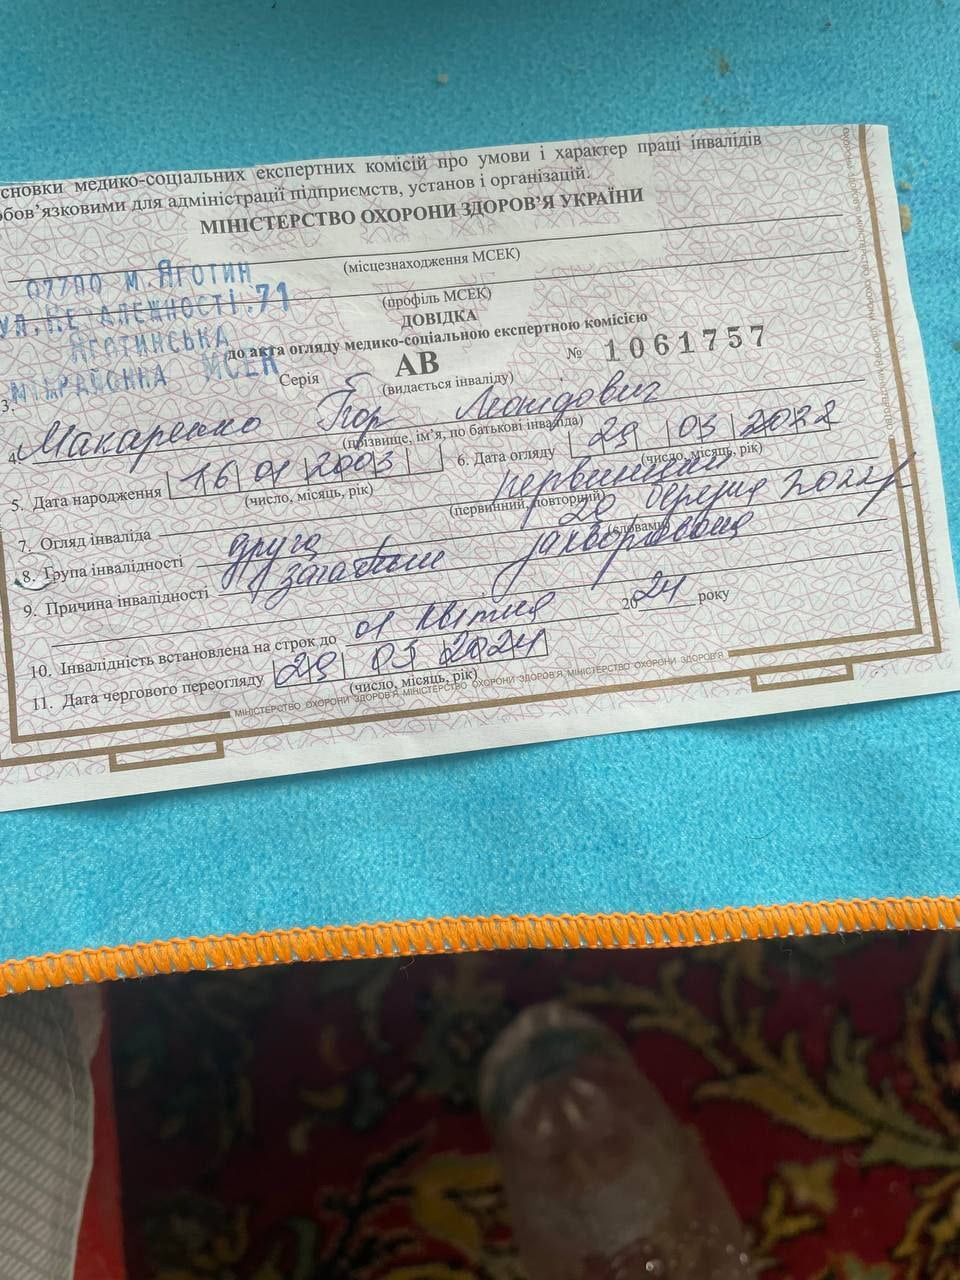 сновки медико-соціальних експертних комісій про умови і характер праці інвалідів
обов’язковими для адміністрації підприємств, установ і організацій.
МІНІСТЕРСТВО ОХОРОНИ ЗДОРОВ’Я УКРАЇНИ
07700 м. Яготин
(місцезнаходження МСЕК)
.71
(профіль МСЕК)
ЯГОТИНСЬКА
ДОВІДКА
до акта огляду медико-соціальною експертною комісією
МСЕК
Серія АВ № 1061757
(видається інваліду)
3.
4. Макаренко Ігор Леонідович
(прізвище, ім’я, по батькові інваліда)
5. Дата народження 16 01 2003 6. Дата огляду 29 03 2022
(число, місяць, рік) (число, місяць, рік)
7. Огляд інваліда первинний
(первинний, повторний) березня 2022р
(словами)
8. Група інвалідності друга
9. Причина інвалідності загальне захворювання
10. Інвалідність встановлена на строк до 01 квітня 2024 року
11. Дата чергового переогляду 29 03 2024
(число, місяць, рік)
МІНІСТЕРСТВО ОХОРОНИ ЗДОРОВ’Я, МІНІСТЕРСТВО ОХОРОНИ ЗДОРОВ’Я, МІНІСТЕРСТВО ОХОРОНИ ЗДОРОВ’Я